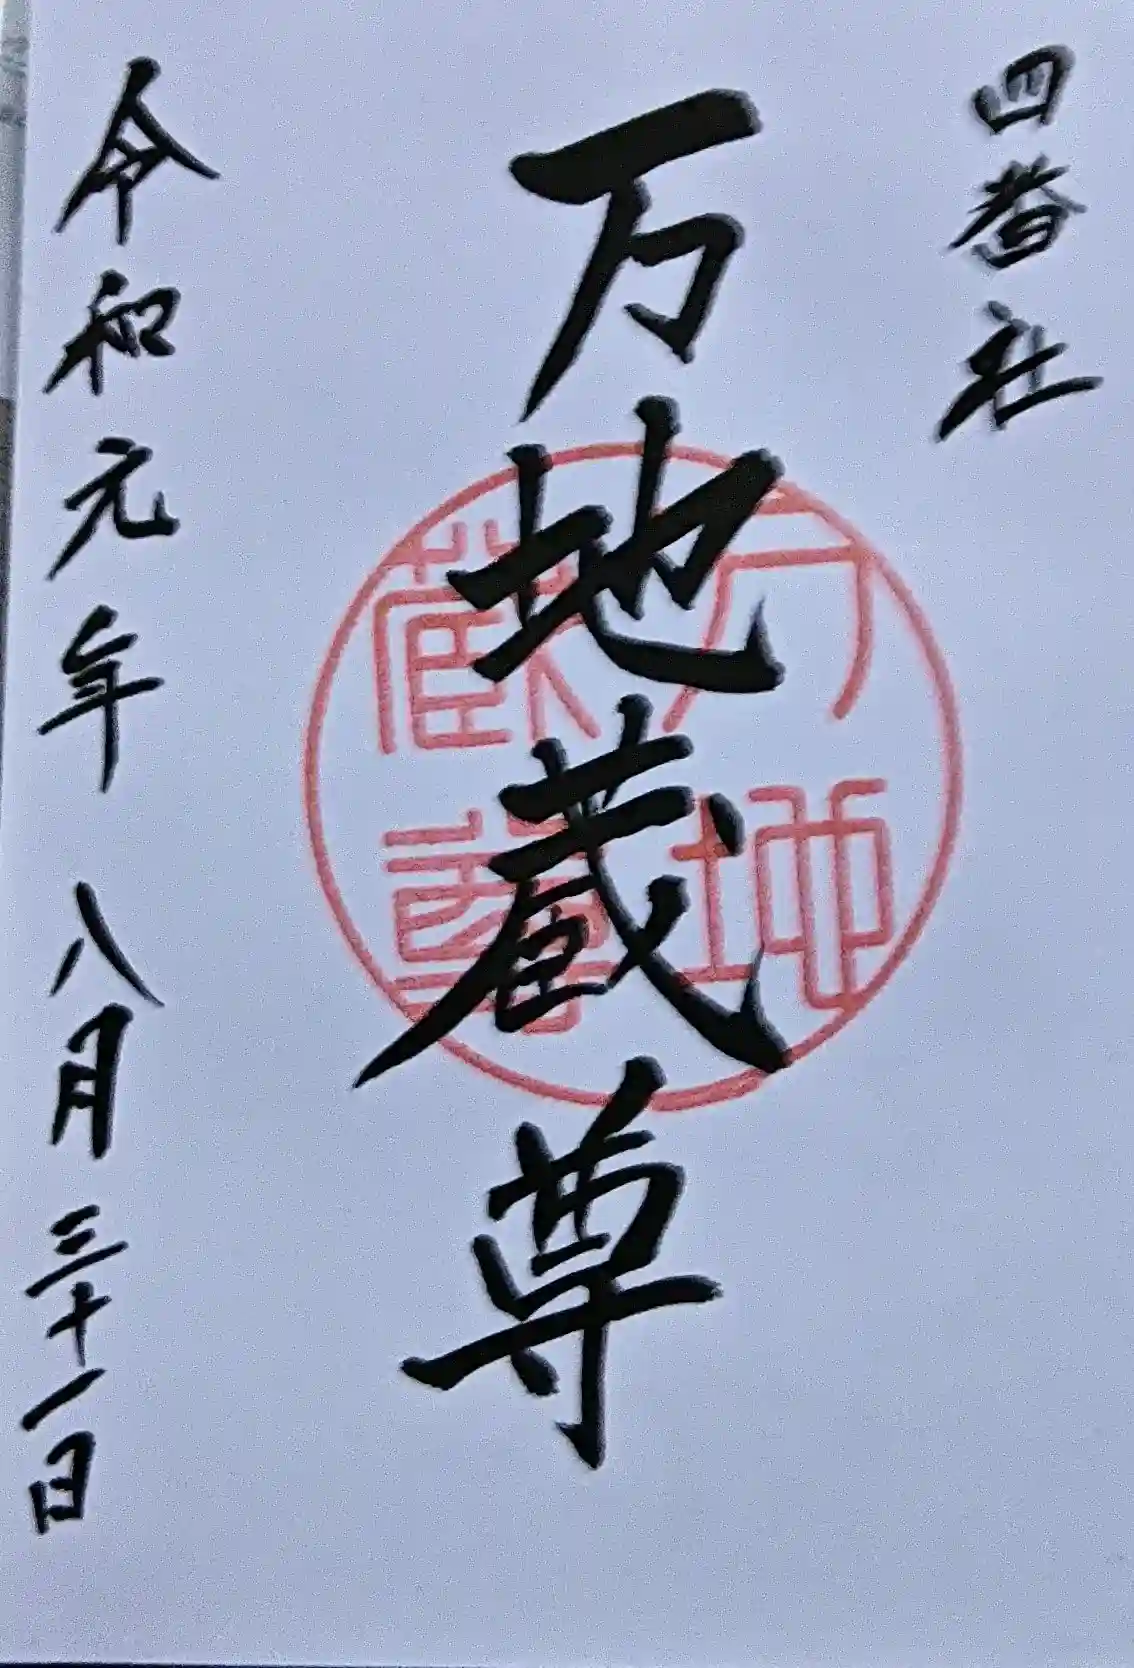 四番社
万地蔵尊
令和元年 八月三十一日
万地
蔵尊